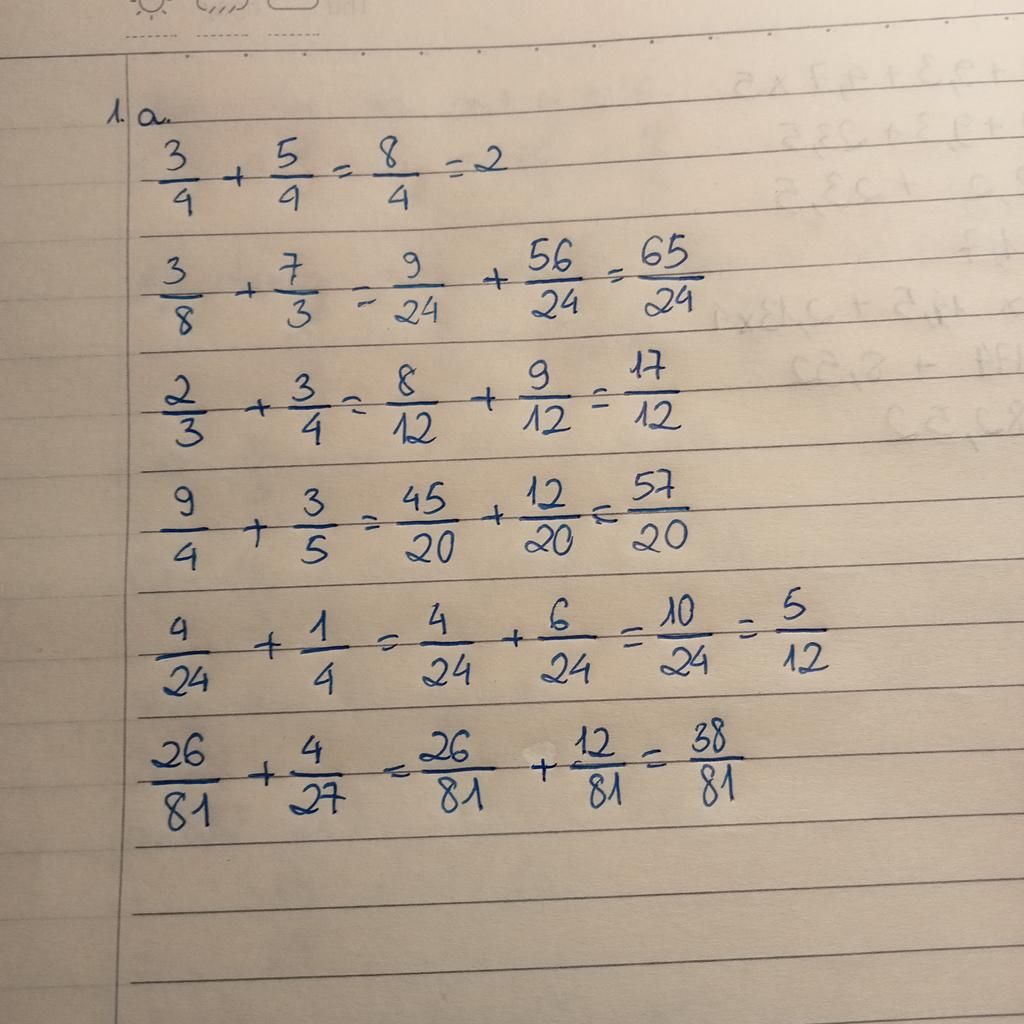 1. a.
3/4 + 5/4 = 8/4 = 2
3/8 + 7/3 = 9/24 + 56/24 = 65/24
2/3 + 3/4 = 8/12 + 9/12 = 17/12
9/4 + 3/5 = 45/20 + 12/20 = 57/20
4/24 + 1/4 = 4/24 + 6/24 = 10/24 = 5/12
26/81 + 4/27 = 26/81 + 12/81 = 38/81